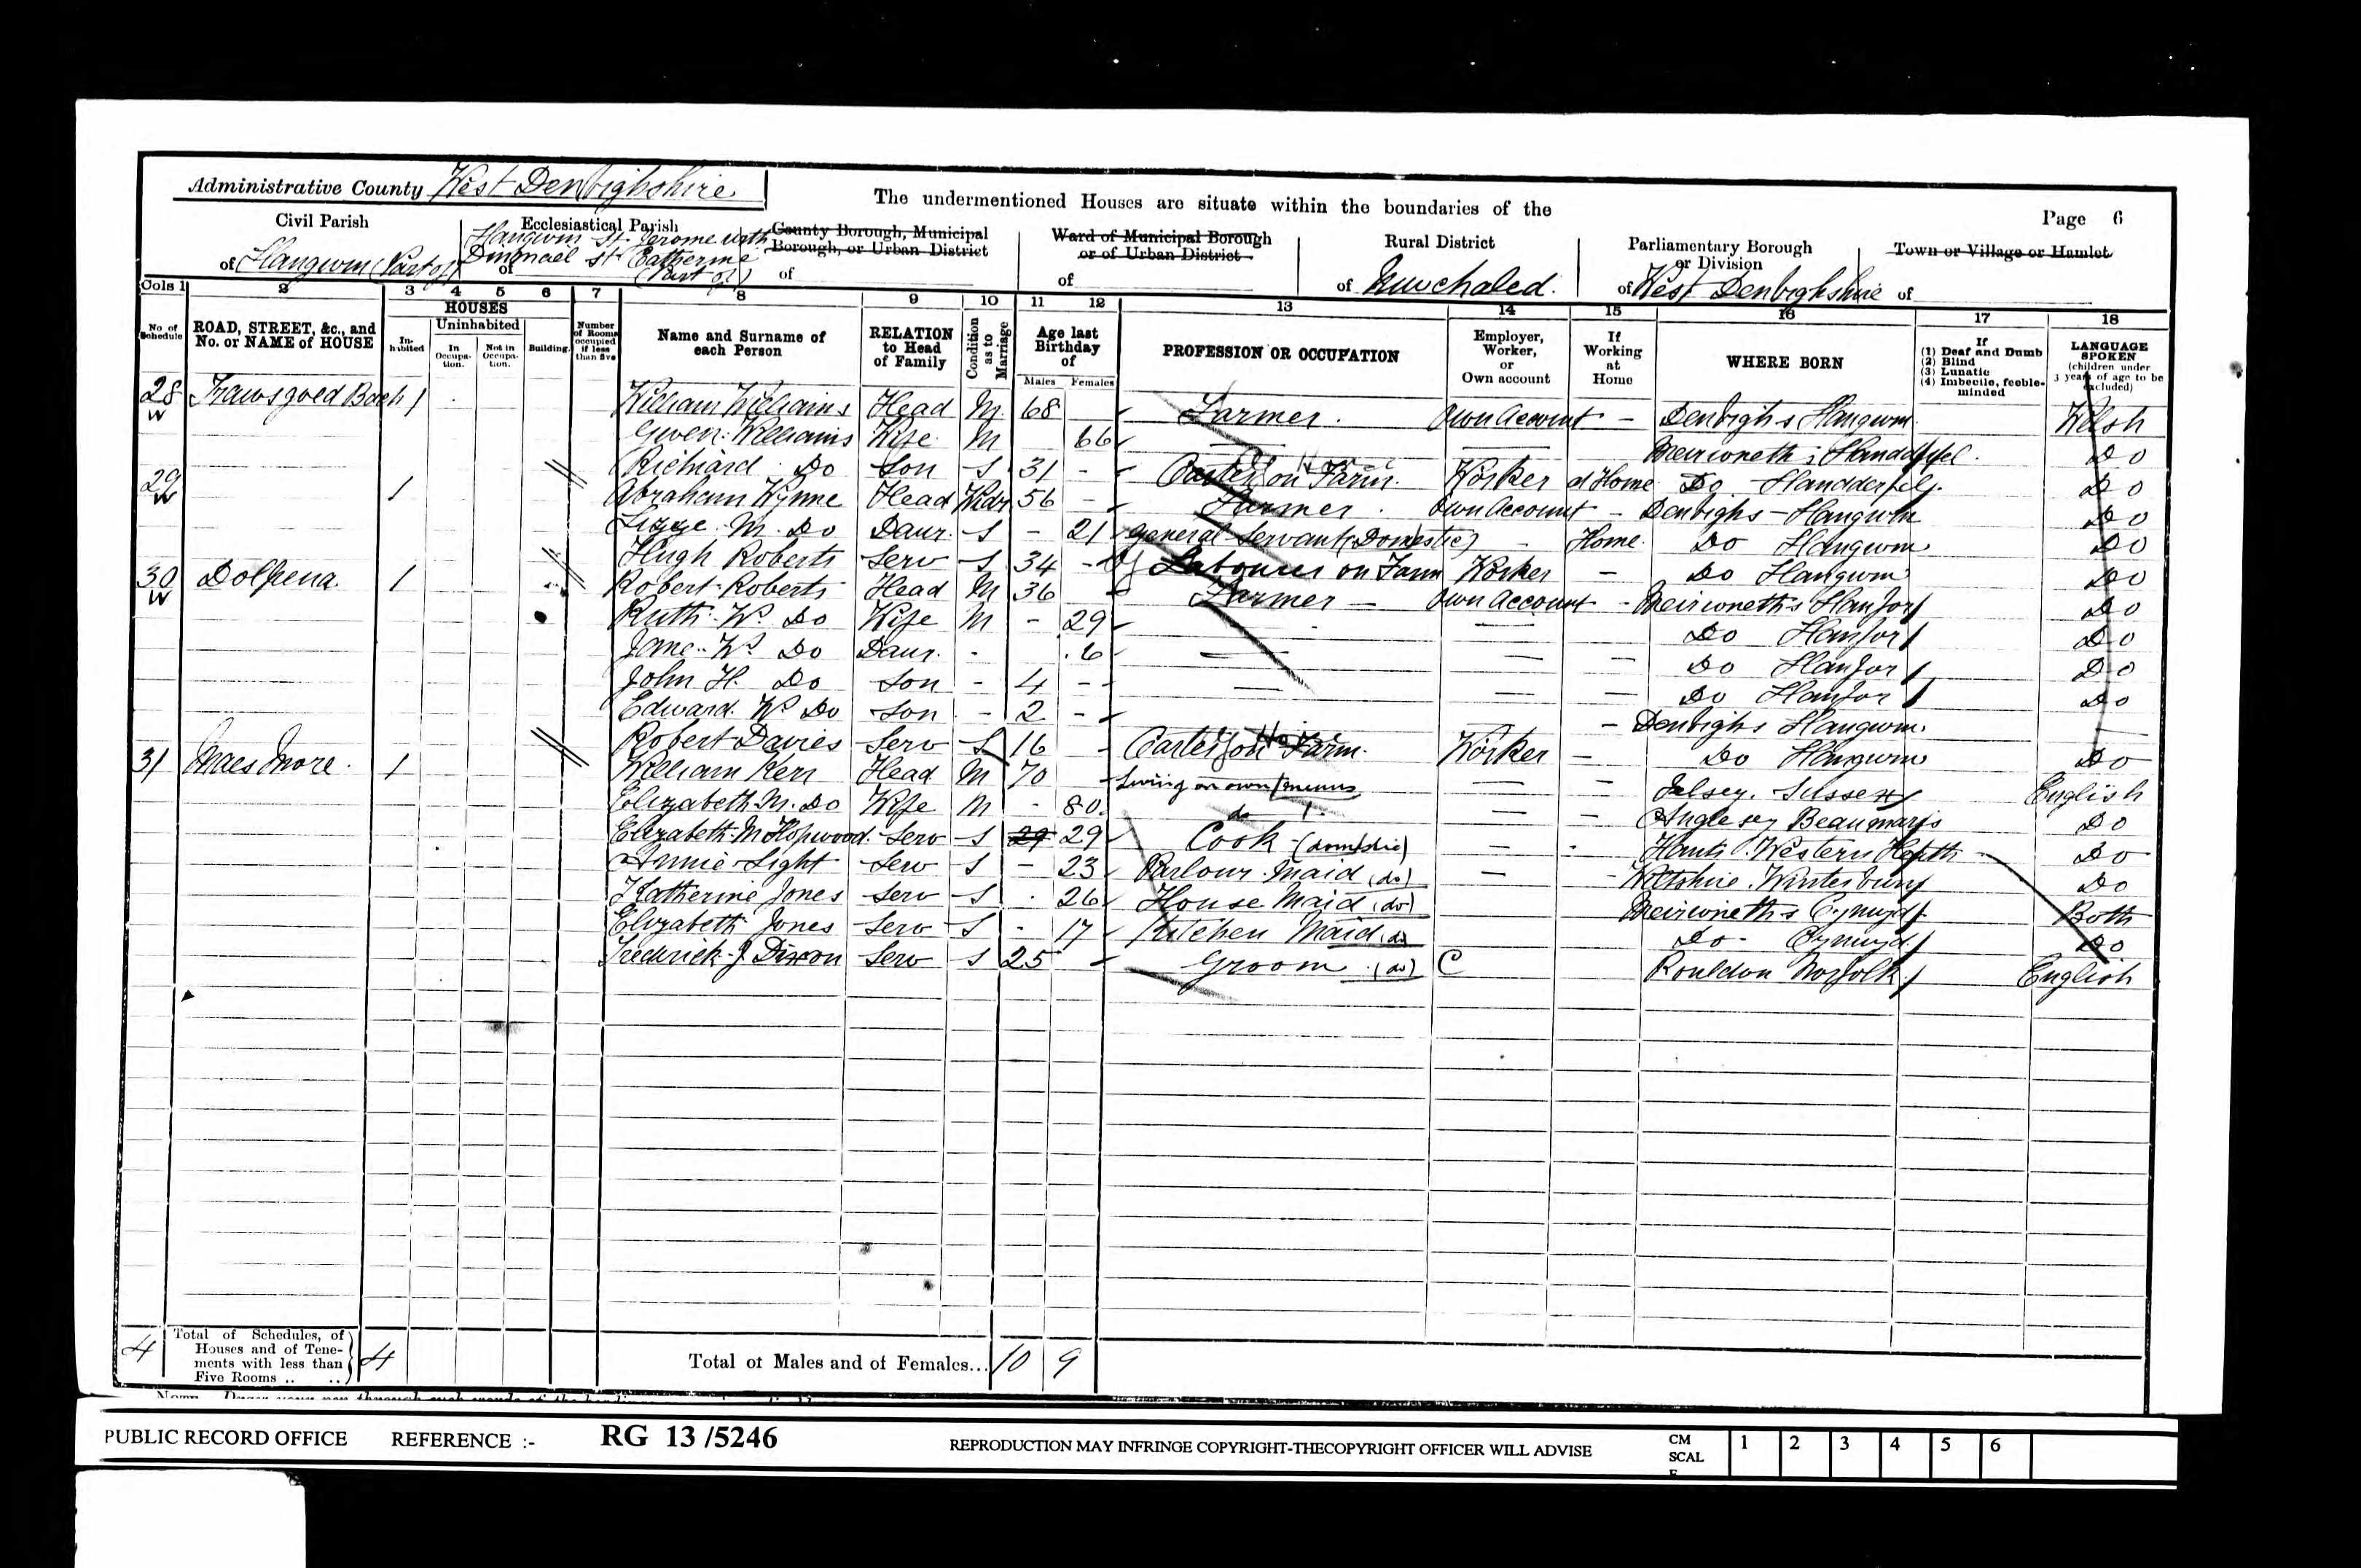 Administrative County West Denbighshire
The undermentioned Houses are situate within the boundaries of the
Page 6
Civil Parish
of Llangwm (Part of)
Ecclesiastical Parish
Llangwm St Jerome with
Dinmael St Catherine
of (Part of)
County Borough, Municipal
Borough, or Urban District
of
Ward of Municipal Borough
or of Urban District
of
Rural District
of Uwchaled.
Parliamentary Borough
or Division
of West Denbighshire
Town or Village or Hamlet
of
Cols 1 2 3 4 5 6 7 8 9 10 11 12 13 14 15 16 17 18
No of Schedule
ROAD, STREET, &c., and No. or NAME of HOUSE
HOUSES
In-habited
Uninhabited
In Occupa-tion.
Not in Occupa-tion.
Building.
Number of Rooms occupied if less than five
Name and Surname of each Person
RELATION to Head of Family
Condition as to Marriage
Age last Birthday of
Males Females
PROFESSION OR OCCUPATION
Employer, Worker, or Own account
If Working at Home
WHERE BORN
If
(1) Deaf and Dumb
(2) Blind
(3) Lunatic
(4) Imbecile, feeble-minded
LANGUAGE SPOKEN
(children under 3 years of age to be excluded)
28 W Trawsgoed Bach 1 William Williams Head M 68 Farmer. Own Account - Denbighs Llangwm Welsh
Gwen Williams Wife M 66 — — Meirioneth s Do
Richard Do Son S 31 - Carter on Farm Worker at Home Do Llandderfel. Do
29 W 1 Abraham Wynne Head Widr 56 - Farmer. Own Account - Denbighs - Llangwm Do
Lizzie M. Do Daur. S - 21 General Servant (Domestic) - Home Do Llangwm Do
Hugh Roberts Serv S 34 - Labourer on Farm Worker - Do Llangwm Do
30 W Dolpena 1 Robert Roberts Head M 36 Farmer - Own Account - Meirioneths Llanfor Do
Ruth W. Do Wife M - 29 - — Do Llanfor Do
Jane W. Do Daur. - 6 — — — Do Llanfor Do
John H. Do Son - 4 - — — — Do Llanfor Do
Edward W. Do Son - 2 - — - Denbighs Llangwm.
Robert Davies Serv S 16 - Carter on Farm. Worker - Do Llangwm Do
31 Maesmore. 1 William Kerr Head M 70 Living on own means — — Selsey. Sussex English
Elizabeth M. Do Wife M - 80 do — — Anglesey Beaumaris Do
Elizabeth M Hopwood. Serv S 29 29 Cook (domestic) — - Hants. Do
Annie Light Serv S - 23 Parlour Maid (do) — - Wiltshire. Do
Katherine Jones Serv S - 26 House Maid (do) Meirioneths Cynwyd Both
Elizabeth Jones Serv S - 17 Kitchen Maid (do) Do - Cynwyd. Do
Frederick J Dixon Serv S 25 Groom (do) C Norfolk English
4 Total of Schedules, of Houses and of Tene-ments with less than Five Rooms .. .. 4
Total of Males and of Females... 10 9
PUBLIC RECORD OFFICE REFERENCE :- RG 13 /5246 REPRODUCTION MAY INFRINGE COPYRIGHT-THECOPYRIGHT OFFICER WILL ADVISE CM SCAL 1 2 3 4 5 6